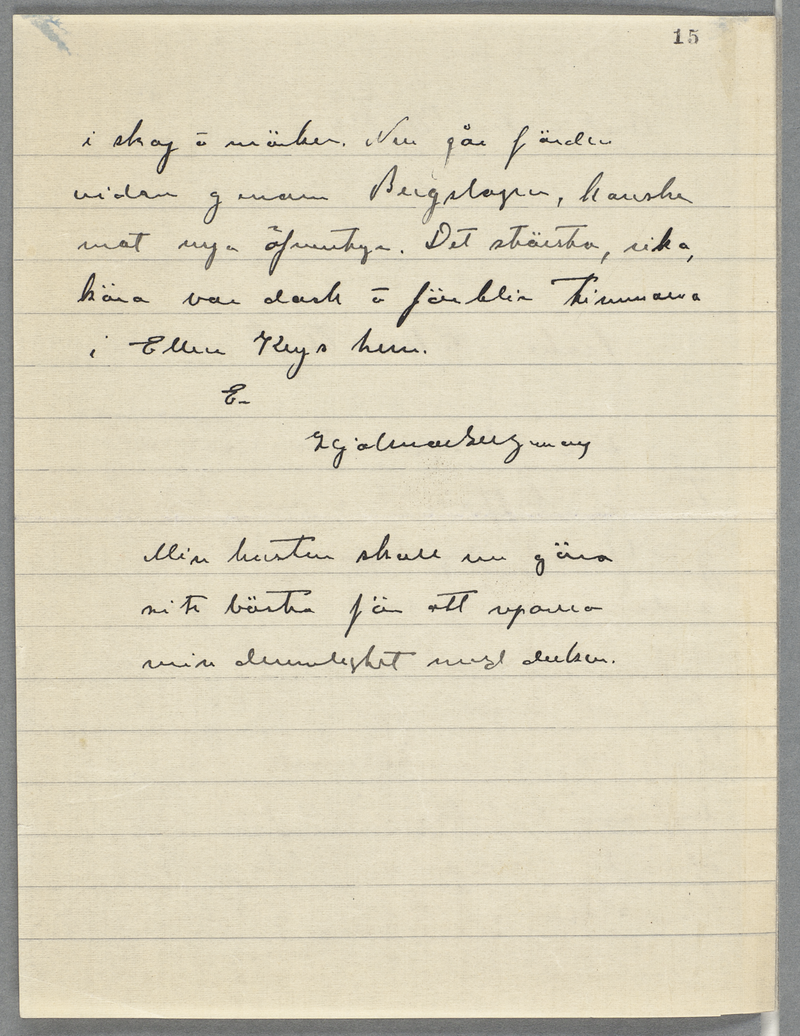 15
i skog o mörker. Nu går färden
vidare genom Bergslagen, kanske
mot nya äfventyr. Det största, rika,
kära var dock o förblir timmarna
i Ellen Keys hem.
E.
Hjalmar Bergman
Min hustru skall nu göra
sitt bästa för att spara
min med